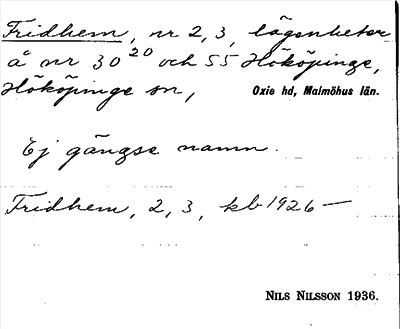 Fridhem, nr 2, 3, lägenheter
å nr 30²⁰ och 55 Hököpinge,
Hököpinge sn, Oxie hd, Malmöhus län.
Ej gängse namn.
Fridhem, 2, 3, kb 1926—
NILS NILSSON 1936.